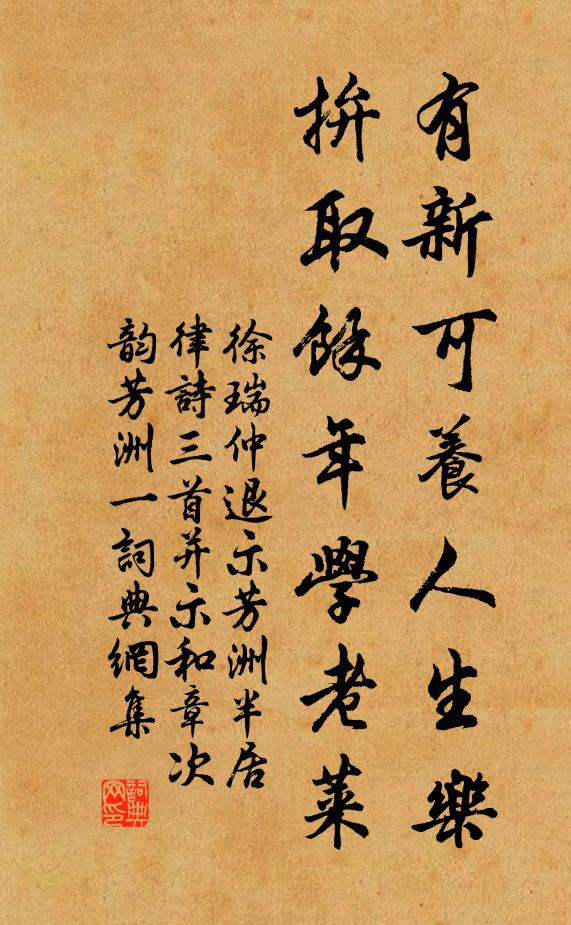 有新可養人生樂
拚取餘年學老萊
徐瑞仲退示芳洲半居
律詩三首并示和章次
韵芳洲一詞典網集
詞典
网印